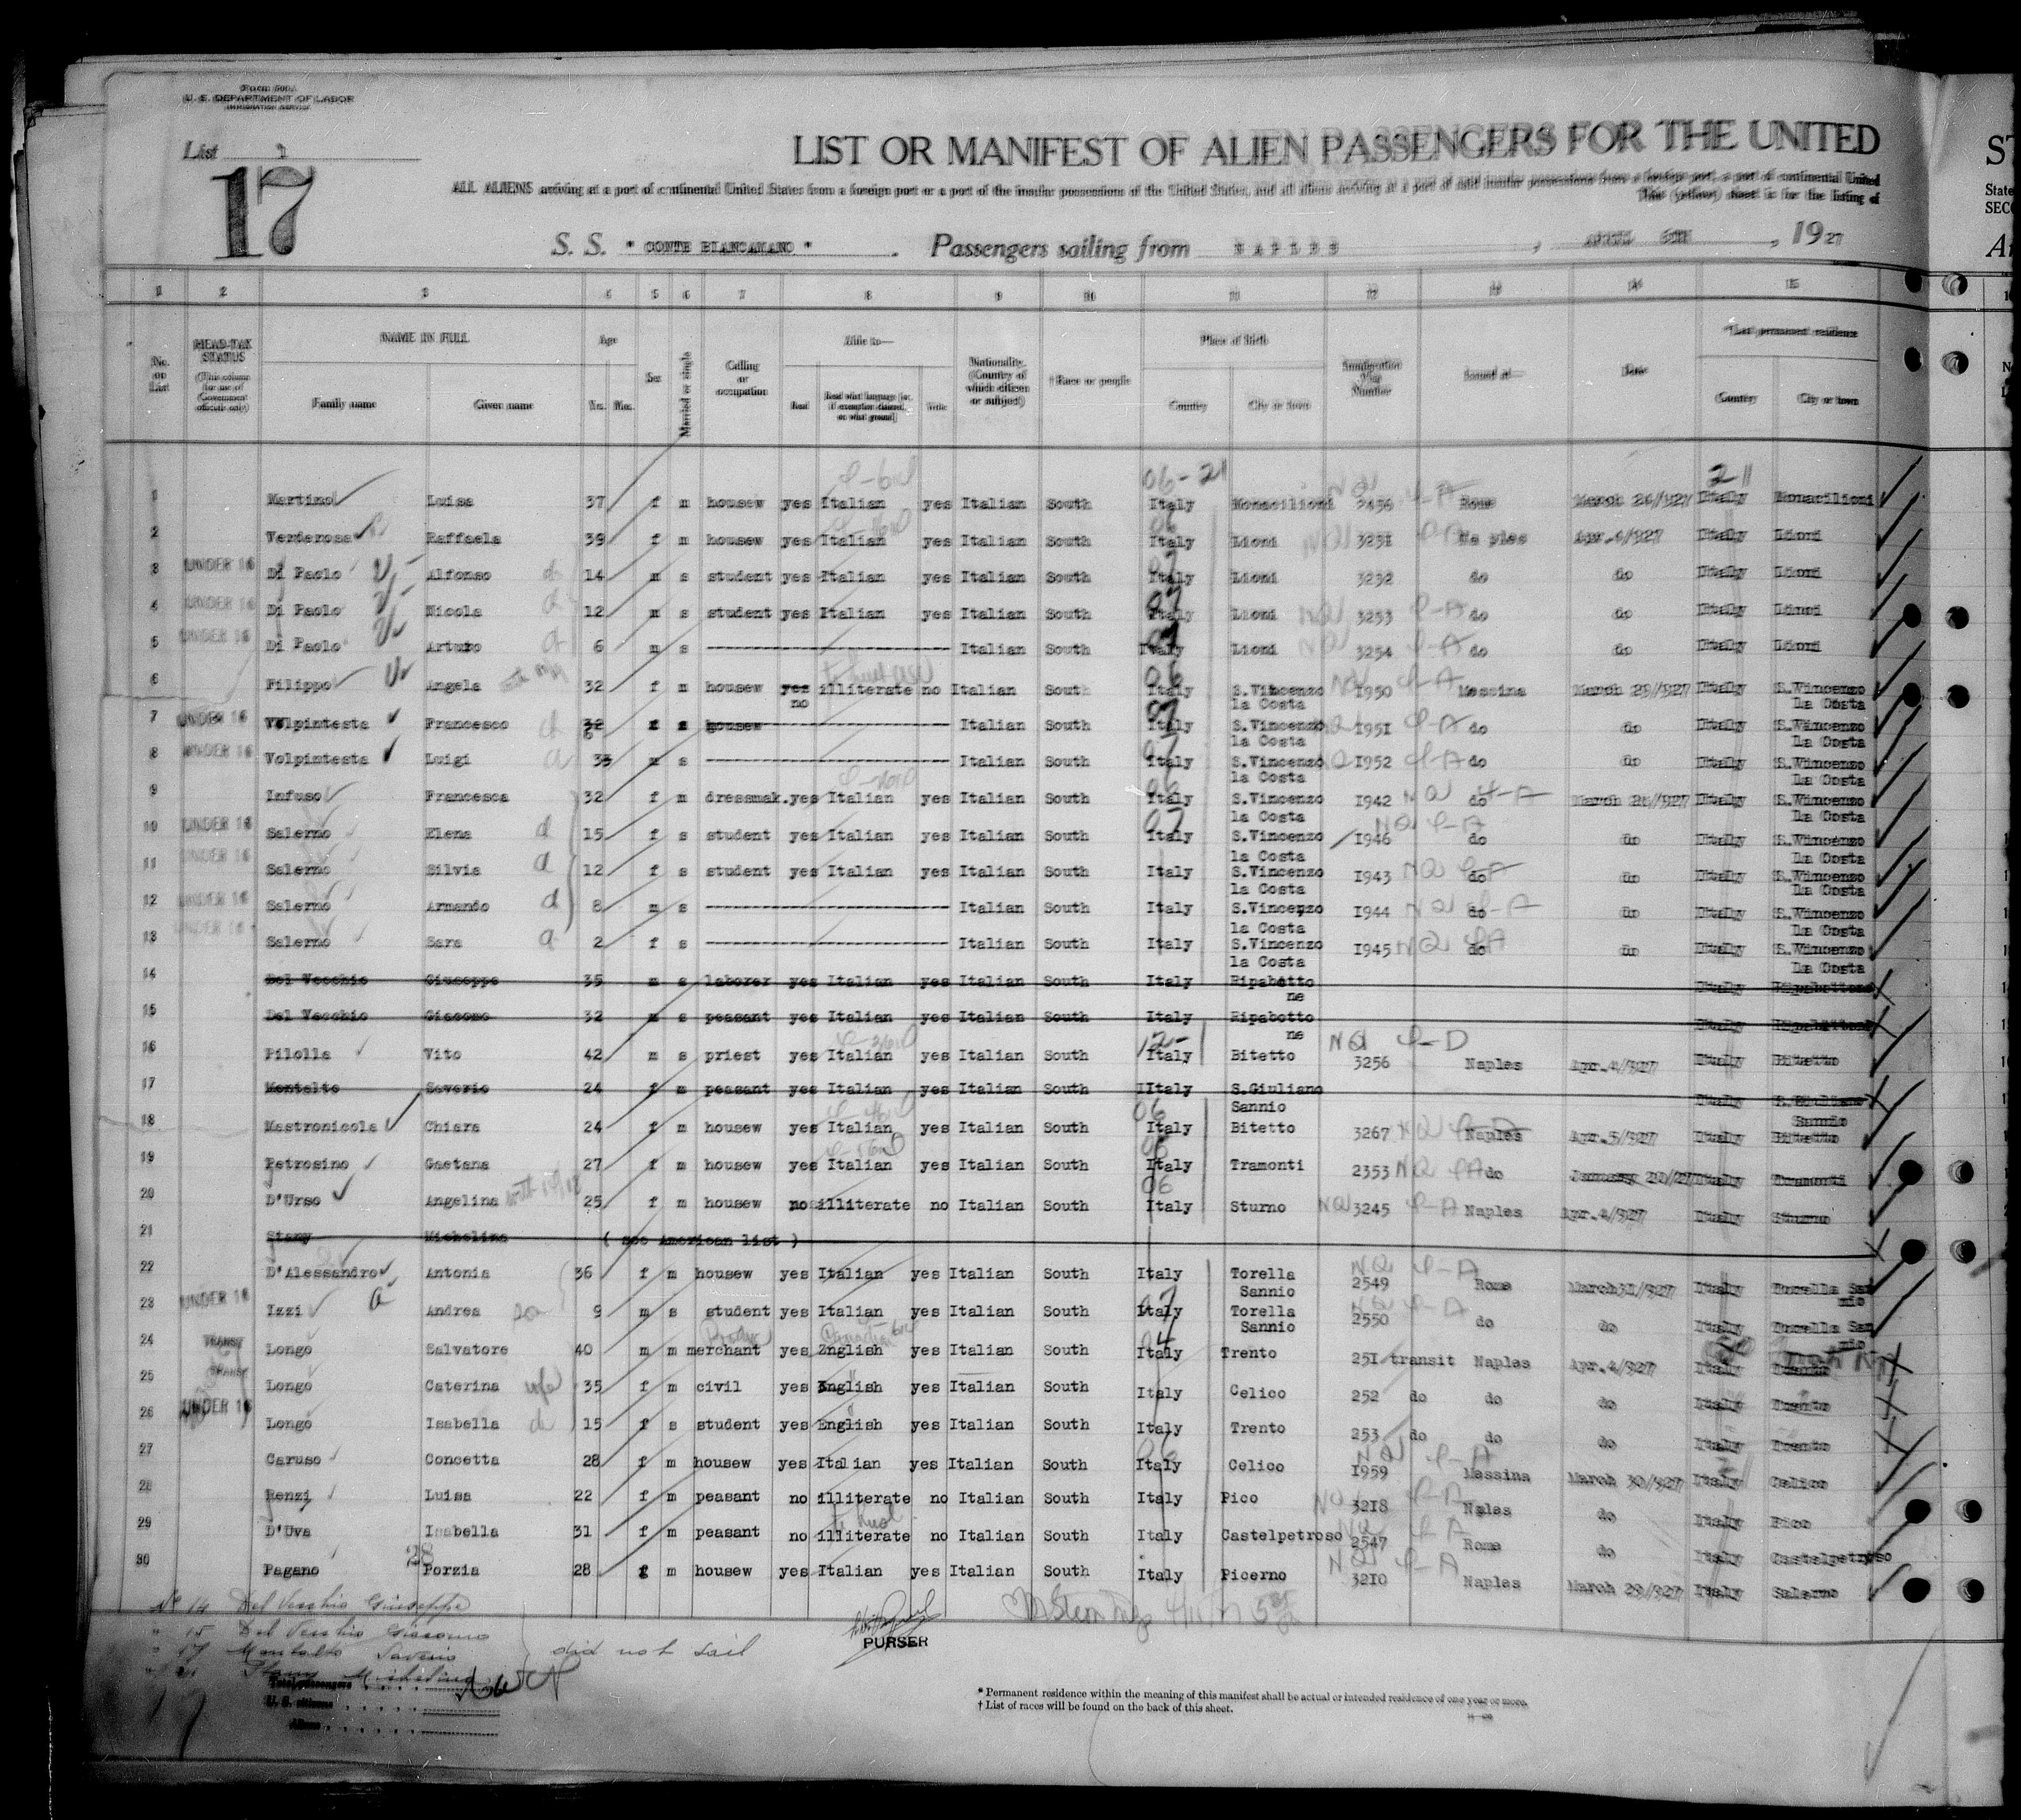 Form 500A
U. S. DEPARTMENT OF LABOR
IMMIGRATION SERVICE
List 1
17
LIST OR MANIFEST OF ALIEN PASSENGERS FOR THE UNITED
ALL ALIENS arriving at a port of continental United States from a foreign port or a port of the insular possessions of the United States, and all aliens arriving at a port of said insular possessions from a foreign port, a port of continental United
This (yellow) sheet is for the listing of
S. S. " CONTE BIANCAMANO " . Passengers sailing from NAPLES , APRIL 5TH , 1927
1 2 3 4 5 6 7 8 9 10 11 12 13 14 15
No. on List
HEAD-TAX STATUS (This column for use of Government officials only)
NAME IN FULL Family name Given name
Age Yrs. Mos.
Sex
Married or single
Calling or occupation
Able to— Read Read what language [or, if exemption claimed, on what ground] Write
Nationality. (Country of which citizen or subject)
†Race or people
Place of birth Country City or town
Immigration Visa Number
Issued at—
Date
*Last permanent residence Country City or town
1 Martino Luisa 37 f m housew yes Italian yes Italian South Italy Monacilioni Rome Italy Monacilioni
2 Verderosa Raffaela 39 f m housew yes Italian yes Italian South Italy Lioni NQ 3251 Na ples Apr.4/927 Italy Lioni
3 UNDER 16 Di Paolo Alfonso 14 m s student yes Italian yes Italian South Italy Lioni 3252 do do Italy Lioni
4 UNDER 16 Di Paolo Nicola 12 m s student yes Italian yes Italian South Italy Lioni NQ 3253 do do Italy Lioni
5 UNDER 16 Di Paolo Arturo 6 m s Italian South Italy Lioni NQ 3254 do do Italy Lioni
6 Filippo Angela 32 f m housew yes no illiterate no Italian South Italy S.Vincenzo la Costa NQ 1950 Messina March 29/927 Italy S.Vincenzo La Costa
7 UNDER 16 Volpintesta Francesco 32 6 s housew Italian South Italy S.Vincenzo la Costa 1951 do do Italy S.Vincenzo La Costa
8 UNDER 16 Volpintesta Luigi m s Italian South Italy S.Vincenzo la Costa 1952 do do Italy S.Vincenzo La Costa
9 Infuso Francesca 32 f m dressmak. yes Italian yes Italian South Italy S.Vincenzo la Costa 1942 NQ do Italy S.Vincenzo La Costa
10 UNDER 16 Salerno Elena d 15 f s student yes Italian yes Italian South Italy S.Vincenzo la Costa 1946 NQ do do Italy S.Vincenzo La Costa
11 UNDER 16 Salerno Silvia d 12 f s student yes Italian yes Italian South Italy S.Vincenzo la Costa 1943 NQ do do Italy S.Vincenzo La Costa
12 UNDER 16 Salerno Armando d 8 m s Italian South Italy S.Vincenzo la Costa 1944 NQ do do Italy S.Vincenzo La Costa
13 UNDER 16 Salerno Sara 2 f s Italian South Italy S.Vincenzo la Costa 1945 NQ do do Italy S.Vincenzo La Costa
14 Del Vecchio Giuseppe 35 m s laborer yes Italian yes Italian South Italy Ripabotto ne Italy
15 Del Vecchio Giacomo 32 m s peasant yes Italian yes Italian South Italy Ripabotto ne Italy
16 Pilolla Vito 42 m s priest yes Italian yes Italian South Italy Bitetto NQ 3256 Naples Apr.4/927 Italy Bitetto
17 Montalto Saverio 24 f m peasant yes Italian yes Italian South Italy S.Giuliano Sannio Italy S.Giuliano Sannio
18 Mastronicola Chiara 24 f m housew yes Italian yes Italian South Italy Bitetto 3267 NQ Naples Apr.5/927 Italy Bitetto
19 Petrosino Gaetana 27 f m housew yes Italian yes Italian South Italy Tramonti 2353 NQ do Italy Tramonti
20 D'Urso Angelina 25 f m housew no illiterate no Italian South Italy Sturno NQ 3245 Naples Apr.4/927 Italy Sturno
21 Stany Michelina ( see American list )
22 D'Alessandro Antonia 36 f m housew yes Italian yes Italian South Italy Torella Sannio NQ 2549 Rome March 31/927 Italy Torella San nio
23 UNDER 16 Izzi Andrea son 9 m s student yes Italian yes Italian South Italy Torella Sannio 2550 do do Italy Torella San nio
24 TRANSIT Longo Salvatore 40 m m merchant yes English yes Italian South Italy Trento 251 transit Naples Apr.4/927 Italy Trento
25 TRANSIT Longo Caterina wife 35 f m civil yes English yes Italian South Italy Celico 252 do do do Italy Trento
26 UNDER 16 Longo Isabella d 15 f s student yes English yes Italian South Italy Trento 253 do do do Italy Trento
27 Caruso Concetta 28 f m housew yes Italian yes Italian South Italy Celico NQ 1959 Messina March 30/927 Italy Celico
28 Renzi Luisa 22 f m peasant no illiterate no Italian South Italy Pico NQ 3218 Naples do Italy Pico
29 D'Uva Isabella 31 f m peasant no illiterate no Italian South Italy Castelpetroso NQ 2547 Rome do Italy Castelpetroso
30 Pagano 28 Porzia 28 f m housew yes Italian yes Italian South Italy Picerno NQ 3210 Naples March 29/927 Italy Salerno
No 14 Del Vecchio Giuseppe
" 15 Del Vecchio Giacomo
" 17 Montalto Saverio did not sail
" 21 Stany Michelina
PURSER
Total passengers
U. S. citizens
Aliens
17
* Permanent residence within the meaning of this manifest shall be actual or intended residence of one year or more.
† List of races will be found on the back of this sheet.